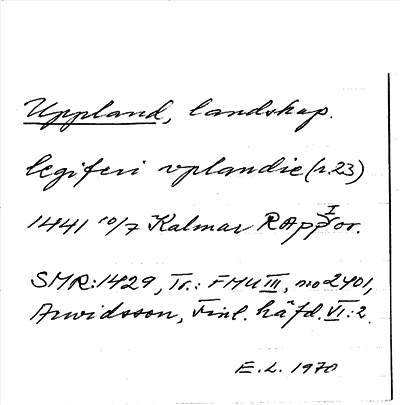 Uppland, landskap.
legiferi vplandie (r. 23)
1441 10/7 Kalmar RApp I or.
SMR: 1429, Tr.: FMU III, no 2401,
Arwidsson, Finl. häfd. VI:2.
E. L. 1970